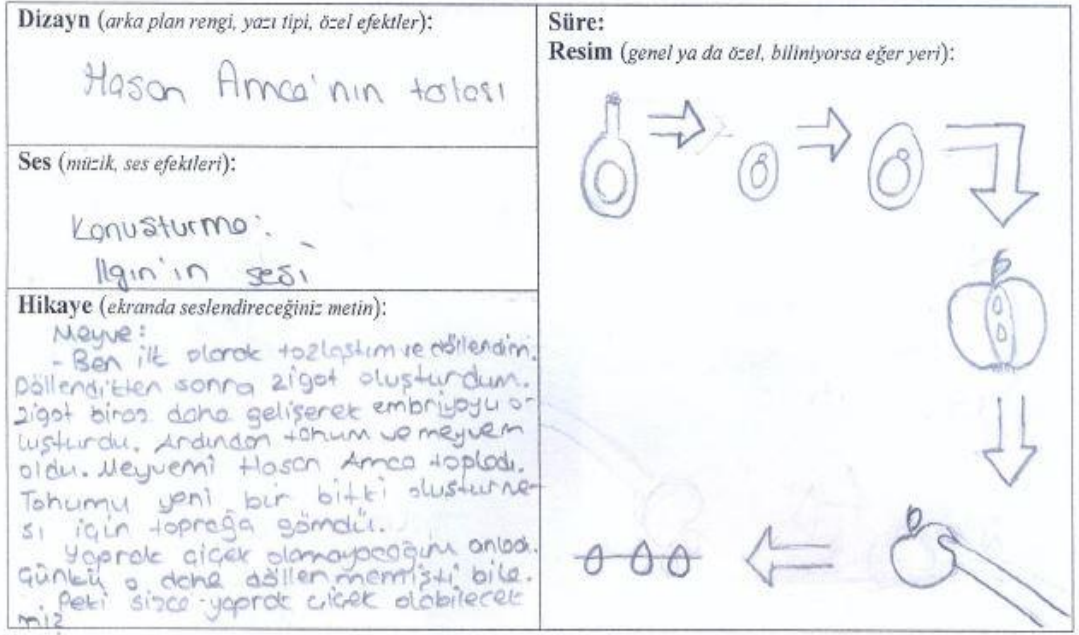 Dizayn (arka plan rengi, yazı tipi, özel efektler):
Hasan Amca'nın tarlası
Ses (müzik, ses efektleri):
Konuşturma:
Ilgın'ın sesi
Hikaye (ekranda seslendireceğiniz metin):
Meyve:
- Ben ilk olarak tozlaştım ve döllendim.
Döllendikten sonra zigot oluşturdum.
Zigot biraz daha gelişerek embriyoyu o-
luşturdu. Ardından tohum ve meyvem
oldu. Meyvemi Hasan Amca topladı.
Tohumu yeni bir bitki oluşturma-
sı için toprağa gömdü.
Yaprak çiçek olamayacağını anladı.
Çünkü o daha döllenmemişti bile.
Peki sizce yaprak çiçek olabilecek
mi?
Süre:
Resim (genel ya da özel, biliniyorsa eğer yeri):